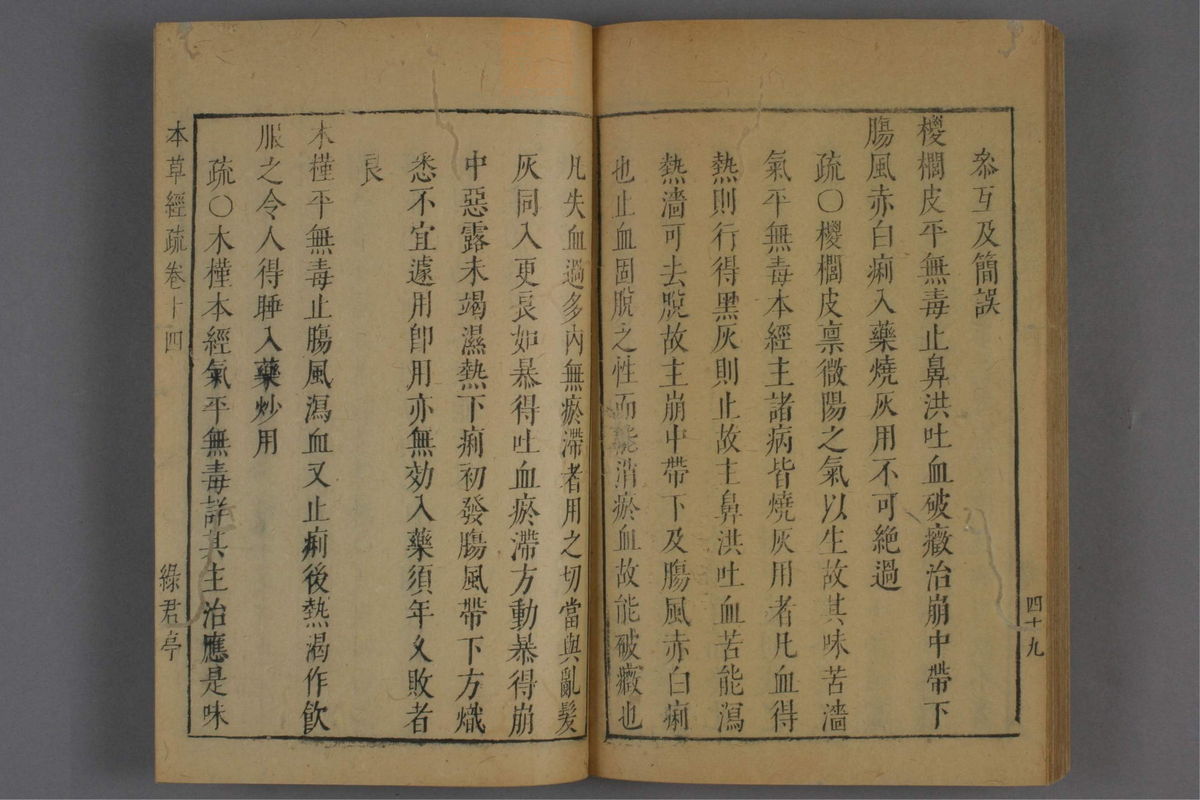 叅互及簡誤
椶櫚皮平無毒止鼻洪吐血破癥治崩中帶下
腸風赤白痢入藥燒灰用不可絶過
疏〇椶櫚皮禀微陽之氣以生故其味苦濇
氣平無毒本經主諸病皆燒灰用者凡血得
熱則行得黑灰則止故主鼻洪吐血苦能瀉
熱濇可去脫故主崩中帶下及腸風赤白痢
也止血固脫之性而能消瘀血故能破癥也
四十九
凡失血過多內無瘀滯者用之切當與亂髮
灰同入更良如暴得吐血瘀滯方動暴得崩
中惡露未竭濕熱下痢初發腸風帶下方熾
悉不宜遽用卽用亦無効入藥須年久敗者
良
木槿平無毒止腸風瀉血又止痢後熱渴作飲
服之令人得睡入藥炒用
疏〇木槿本經氣平無毒詳其主治應是味
本草經疏卷十四
綠君亭